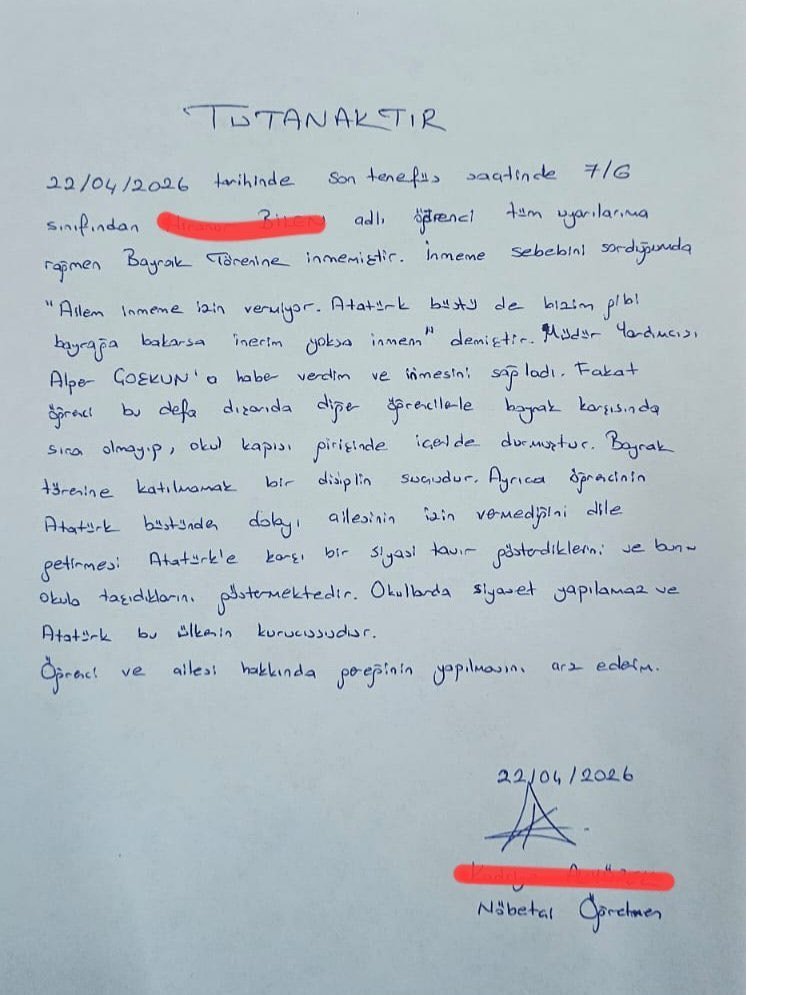 TUTANAKTIR
22/04/2026 tarihinde son tenefüs saatinde 7/G
sınıfından adlı öğrenci tüm uyarılarıma
rağmen Bayrak Törenine inmemiştir. İnmeme sebebini sorduğumda
"Ailem inmeme izin vermiyor. Atatürk büstü de bizim gibi
bayrağa bakarsa inerim yoksa inmem" demiştir. Müdür Yardımcısı
Alper COŞKUN'a haber verdim ve inmesini sağladı. Fakat
öğrenci bu defa dışarıda diğer öğrencilerle bayrak karşısında
sıra olmayıp, okul kapısı girişinde içeride durmuştur. Bayrak
törenine katılmamak bir disiplin suçudur. Ayrıca öğrencinin
Atatürk büstünden dolayı ailesinin izin vermediğini dile
getirmesi Atatürk'e karşı bir siyasi tavır gösterdiklerini ve bunu
okula taşıdıklarını göstermektedir. Okullarda siyaset yapılamaz ve
Atatürk bu ülkenin kurucusudur.
Öğrenci ve ailesi hakkında gereğinin yapılmasını arz ederim.
22/04/2026
Nöbetçi Öğretmen